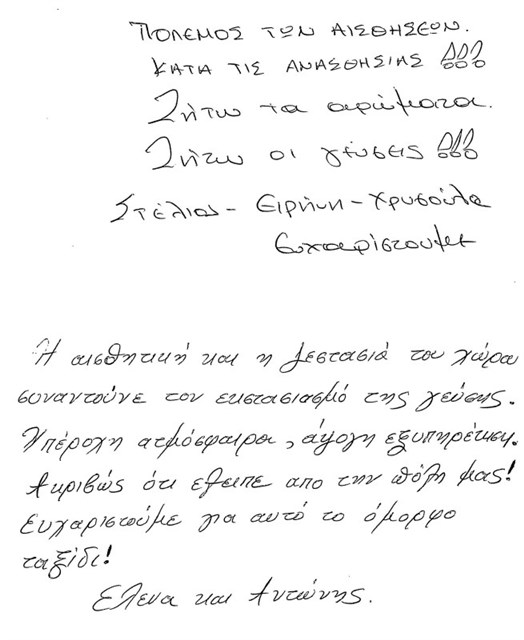 ΠΟΛΕΜΟΣ ΤΩΝ ΑΙΣΘΗΣΕΩΝ.
ΚΑΤΑ ΤΙΣ ΑΝΑΣΘΗΣΙΑΣ !!!
Ζήτω τα αρώματα.
Ζήτω οι γεύσεις !!!
Στέλιος - Ειρήνη - Χρυσούλα
Ευχαριστουμε
Η αισθητική και η ζεστασιά του χώρου
συναντούνε τον εκστασιασμό της γεύσης.
Υπέροχη ατμόσφαιρα, άψογη εξυπηρέτηση.
Ακριβώς ότι έλειπε απο την πόλη μας!
Ευχαριστούμε για αυτό το όμορφο
ταξίδι!
Έλενα και Αντώνης.